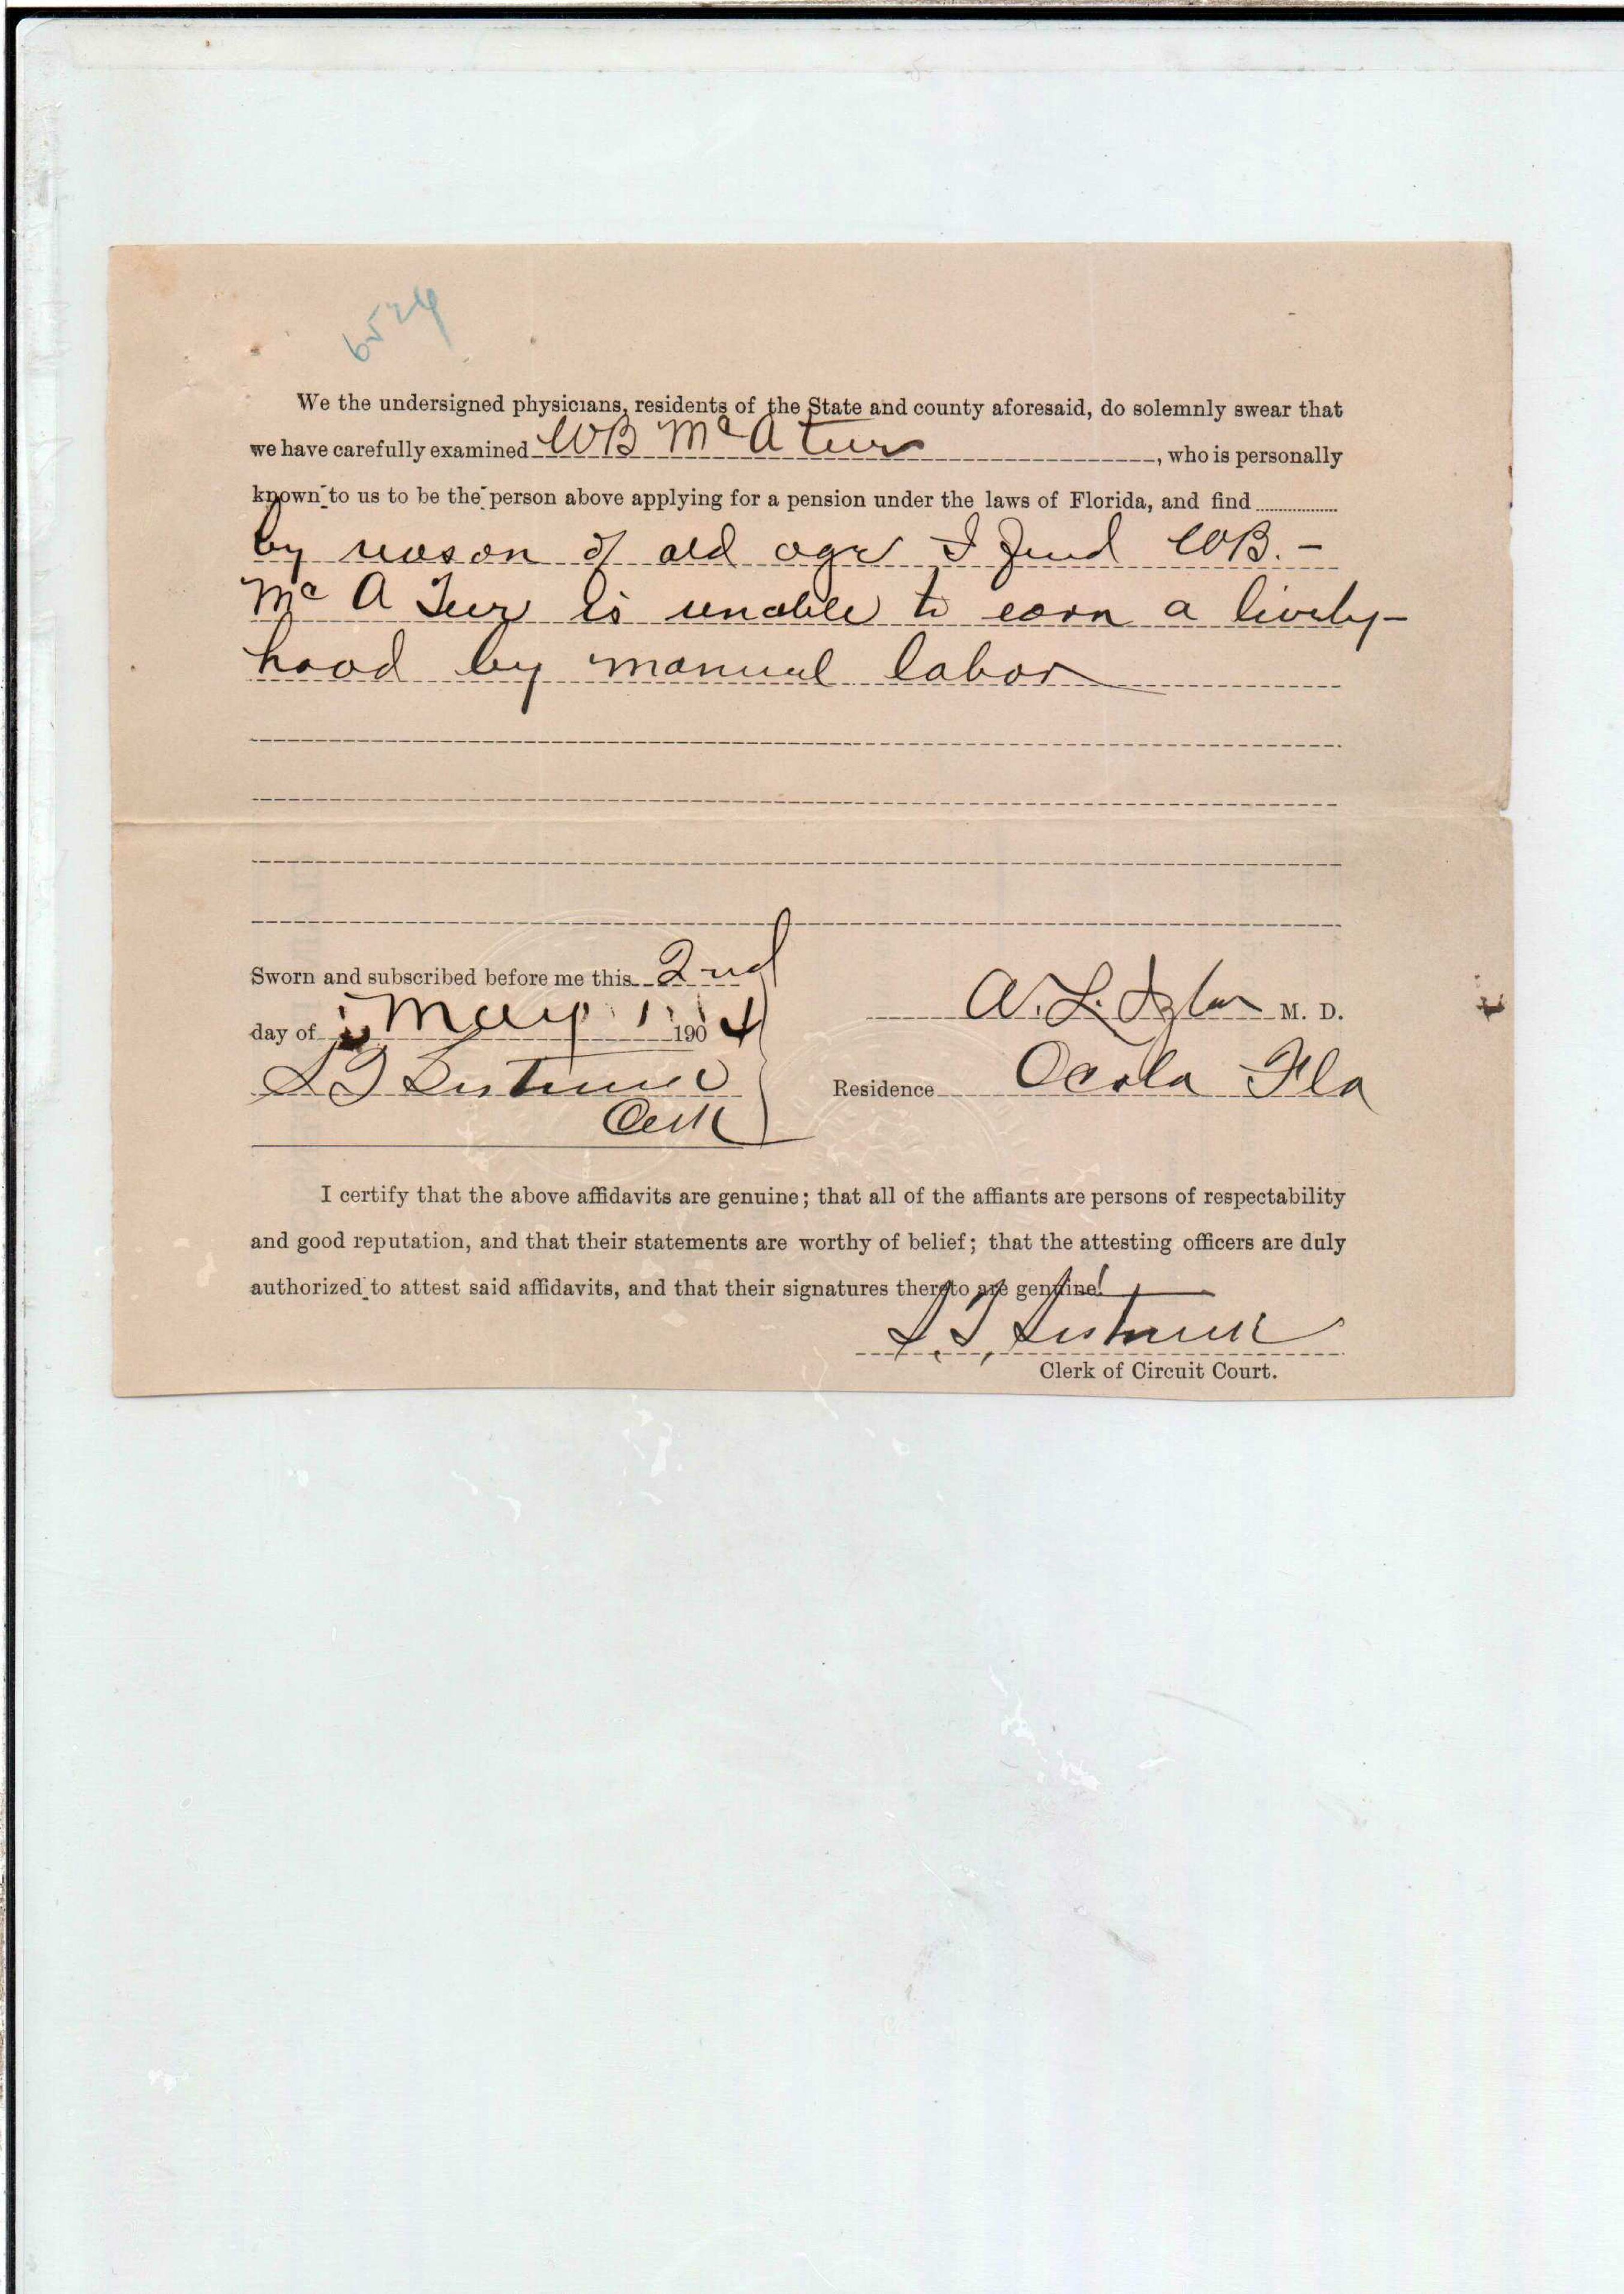 6524
We the undersigned physicians, residents of the State and county aforesaid, do solemnly swear that
we have carefully examined WB McAteer, who is personally
known to us to be the person above applying for a pension under the laws of Florida, and find
by reason of old age I find WB. -
McAteer is unable to earn a lively-
hood by manual labor
Sworn and subscribed before me this 2nd
day of May 1904
A. L. Izlar M. D.
S T Sistrunk
Residence Ocala Fla
Clerk
I certify that the above affidavits are genuine; that all of the affiants are persons of respectability
and good reputation, and that their statements are worthy of belief; that the attesting officers are duly
authorized to attest said affidavits, and that their signatures thereto are genuine.
S. T. Sistrunk
Clerk of Circuit Court.